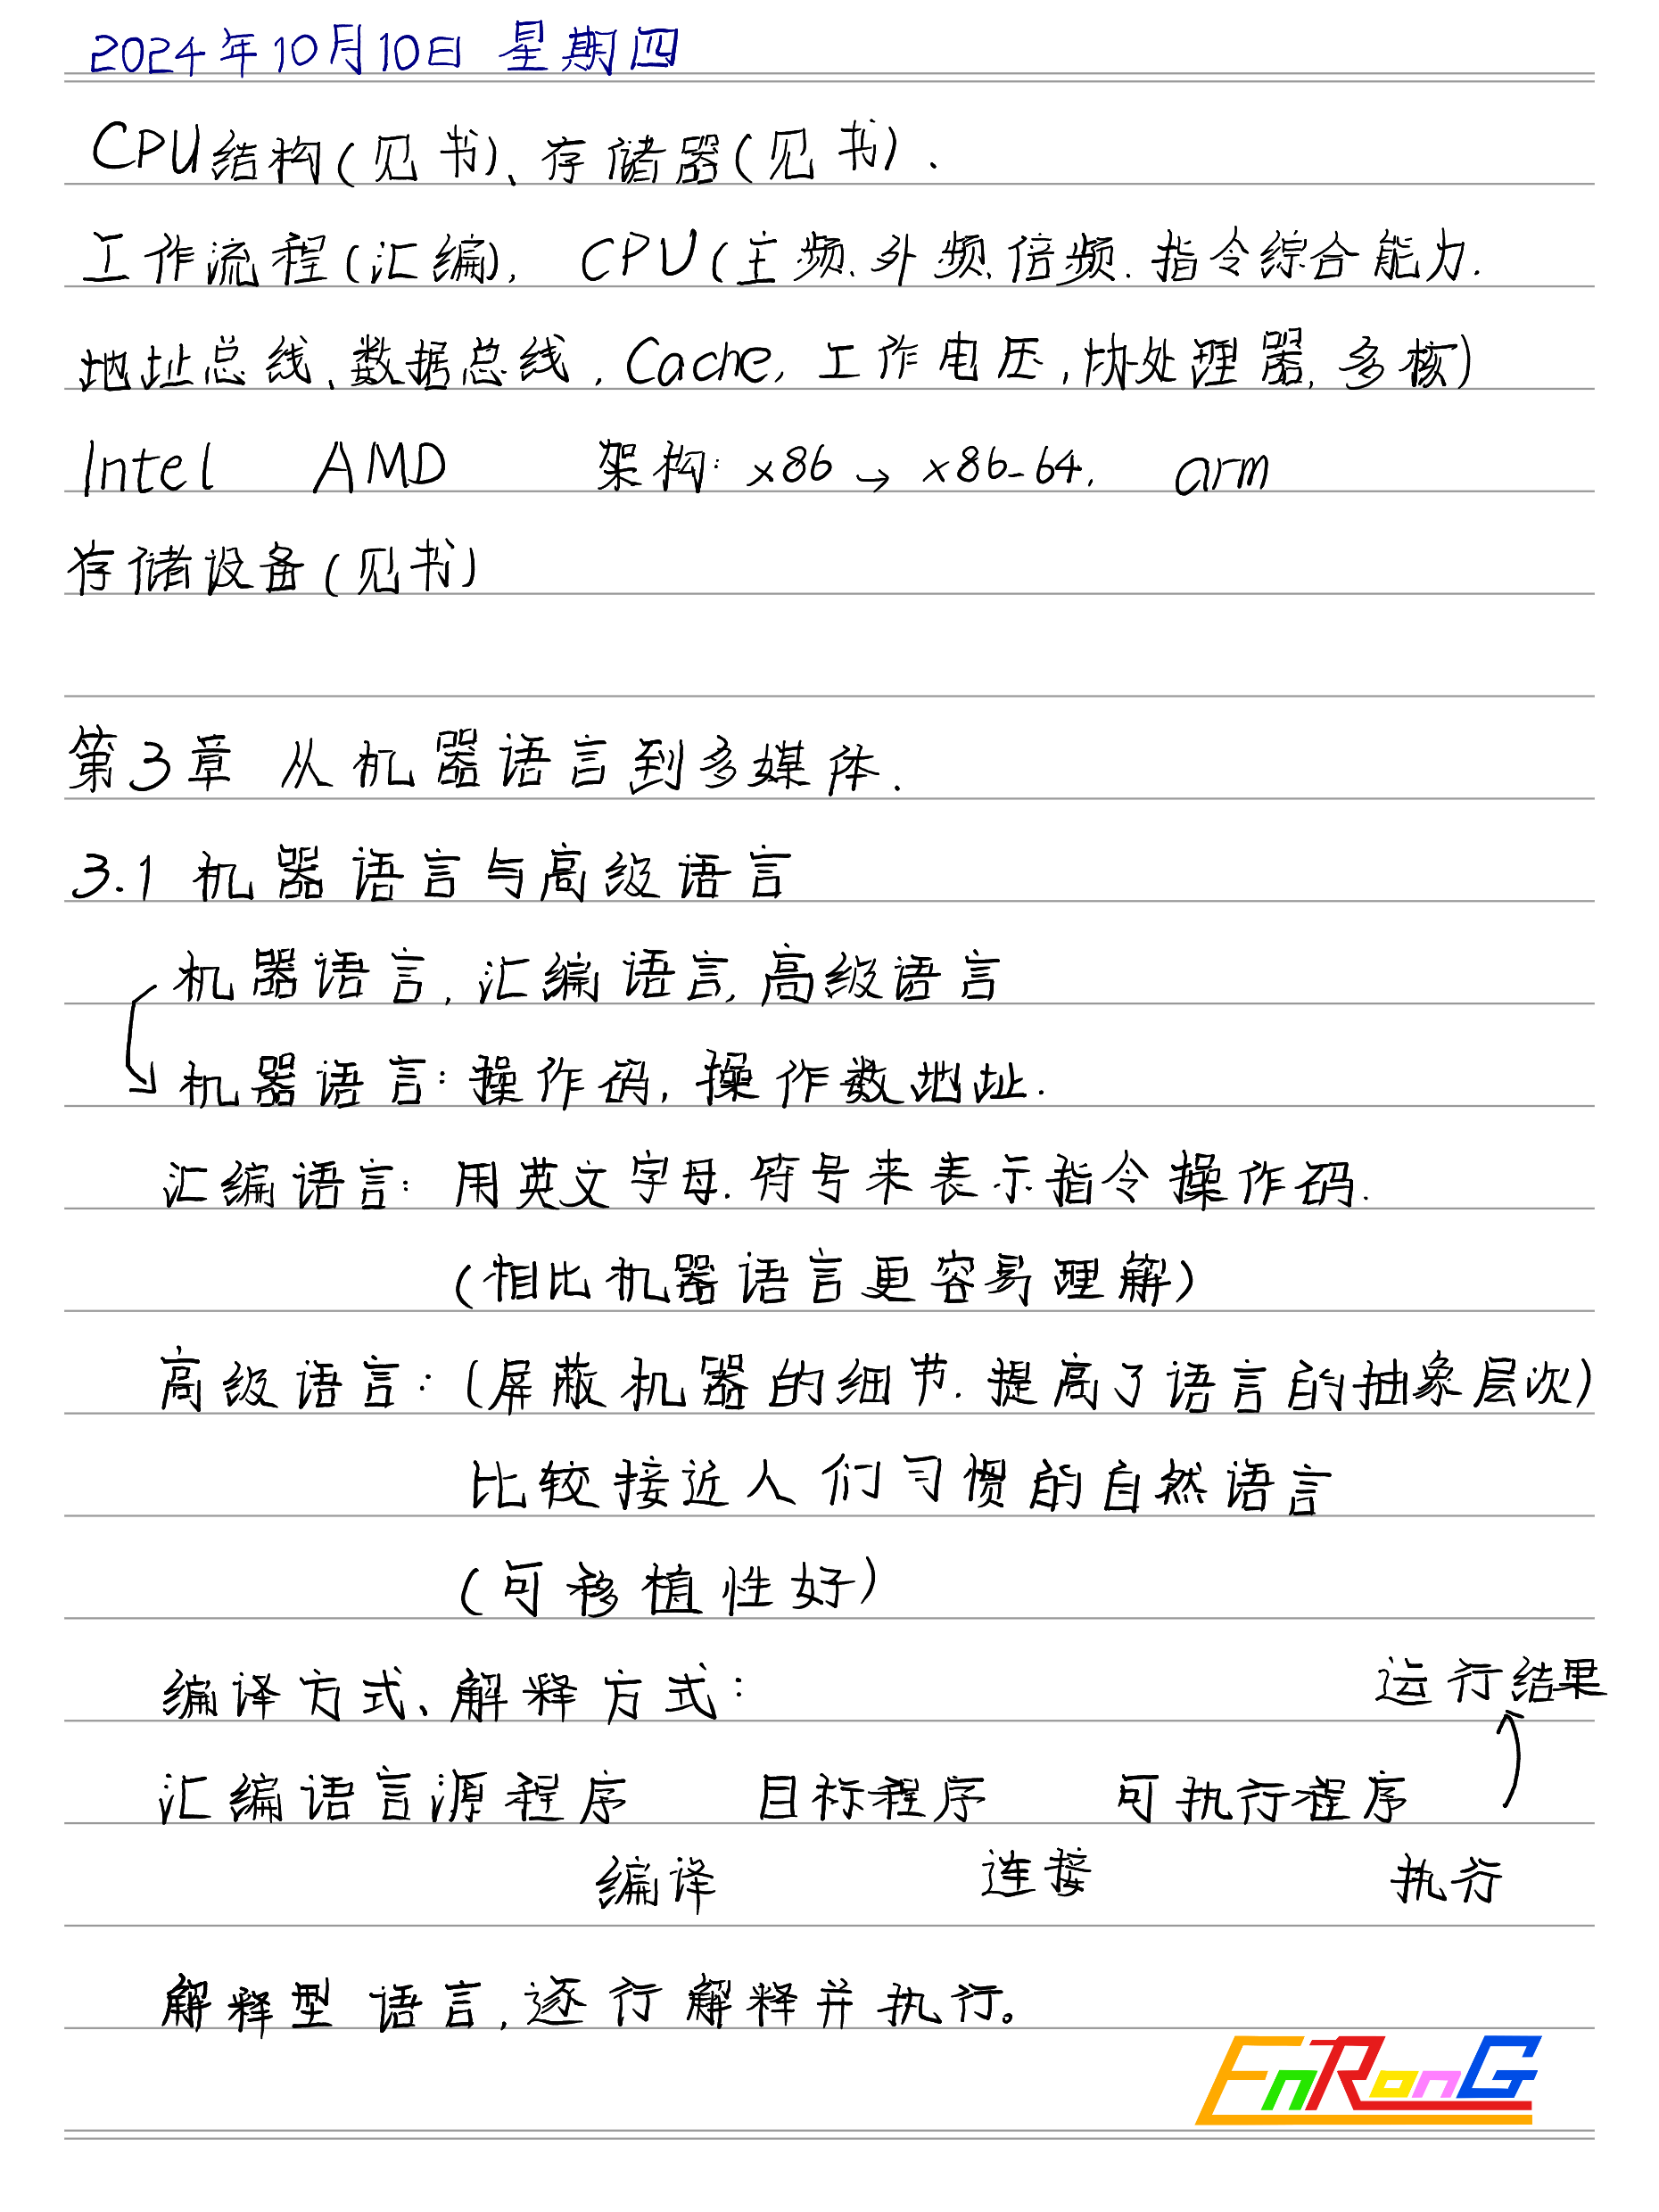 2024年10月10日 星期四
CPU结构(见书)、存储器(见书).
工作流程(汇编), CPU(主频、外频、倍频.指令综合能力.
地址总线、数据总线, Cache, 工作电压,协处理器,多核)
Intel AMD 架构: x86 → x86-64. arm
存储设备(见书)
第3章 从机器语言到多媒体.
3.1 机器语言与高级语言
机器语言,汇编语言,高级语言
机器语言:操作码,操作数地址.
汇编语言: 用英文字母.符号来表示指令操作码.
(相比机器语言更容易理解)
高级语言: (屏蔽机器的细节.提高了语言的抽象层次)
比较接近人们习惯的自然语言
(可移植性好)
编译方式、解释方式: 运行结果
汇编语言源程序 目标程序 可执行程序
编译 连接 执行
解释型语言,逐行解释并执行。
EnRonG